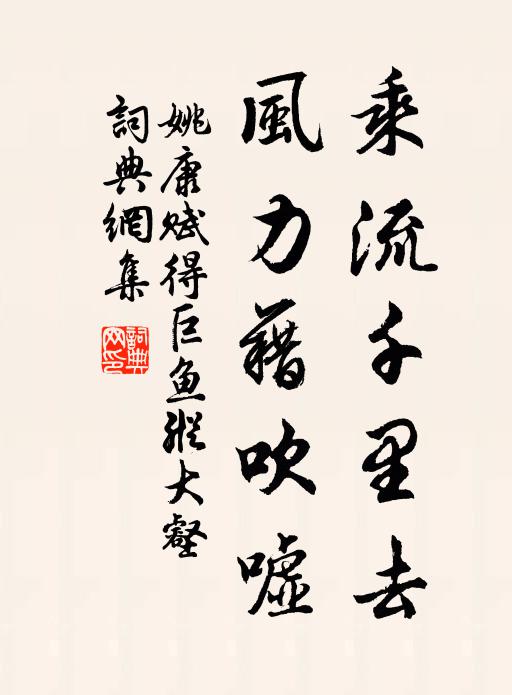 乘流千里去
風力藉吹噓
姚康赋得巨鱼縱大壑
詞典網集
詞典网印